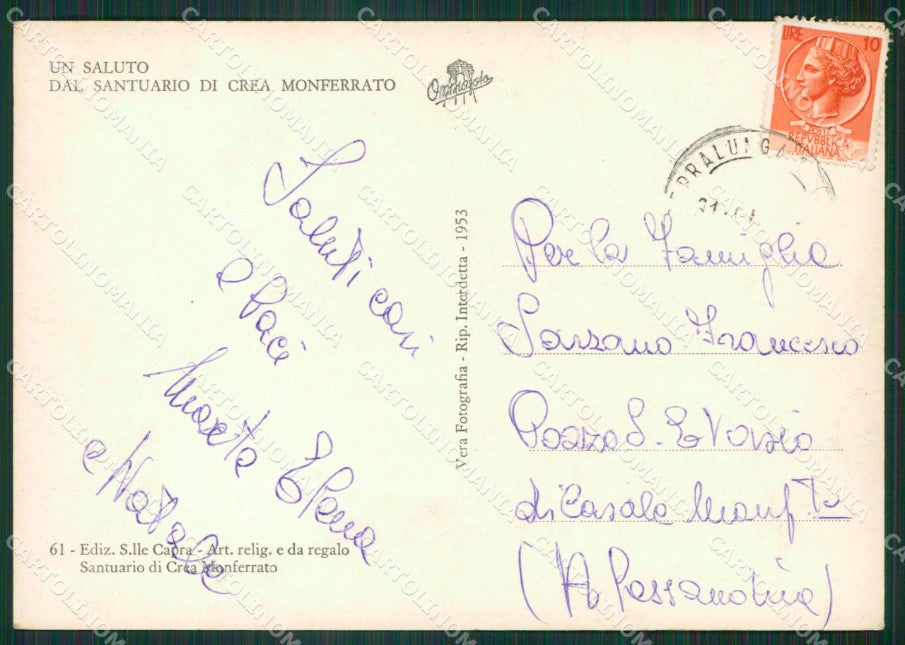 UN SALUTO
DAL SANTUARIO DI CREA MONFERRATO
LIRE 10
POSTE
REPVBBLICA
ITALIANA
Saluti cari
e Baci
Elena
e Natale
61 - Ediz. S.lle Capra - Art. relig. e da regalo
Santuario di Crea Monferrato
Vera Fotografia - Rip. Interdetta - 1953
Per la Famiglia
Sarzano Francesco
Pozzo S. Evasio
di Casale Monf.to
(Alessandria)
CARTOLINOMANIA